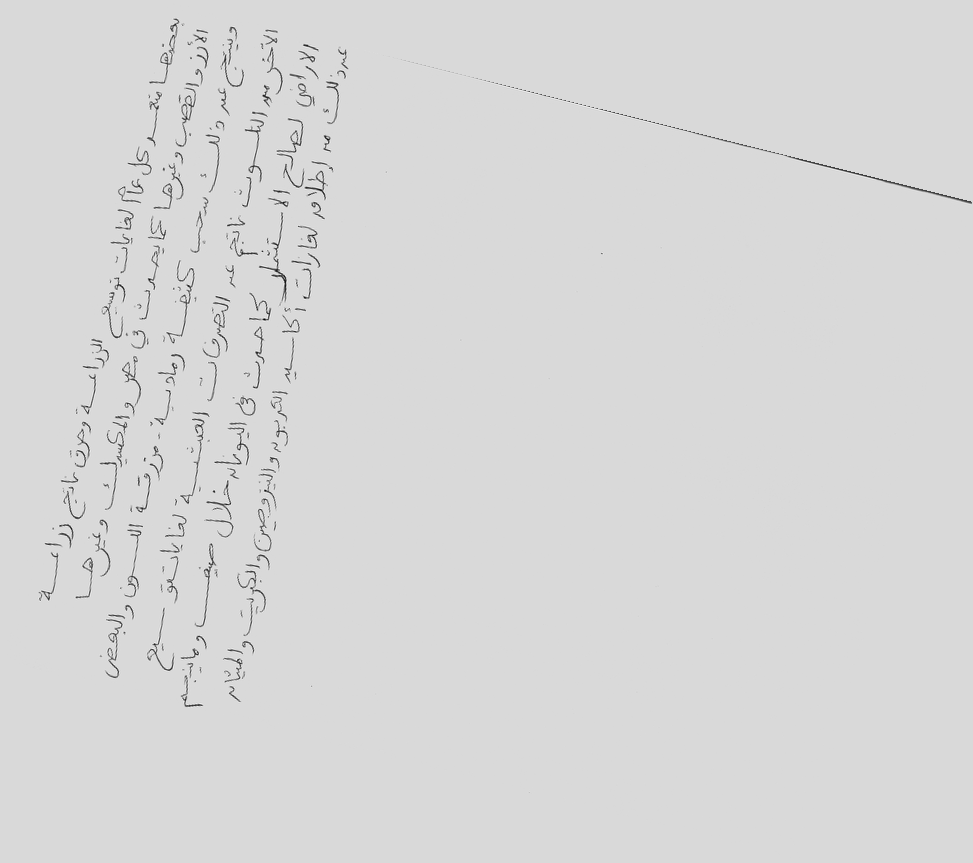 بعضها متعمد كل عام لغايات توسيع الزراعة وحرق ناتج زراعة
الأرز والقصب وغيرها كما يحدث في مصر والمكسيك وغيرها
وينتج عن ذلك سحب كثيفة رمادية - مزرقة اللون والبعض
الآخر من التلوث ناتج عن التصرفات العبثية لغايات توسيع
الاراضي لصالح الاستثمار كما حدث في اليونان خلال صيف وما ينجم
عن ذلك من إطلاق لغازات أكاسيد الكربون والنيتروجين والكبريت والميثان